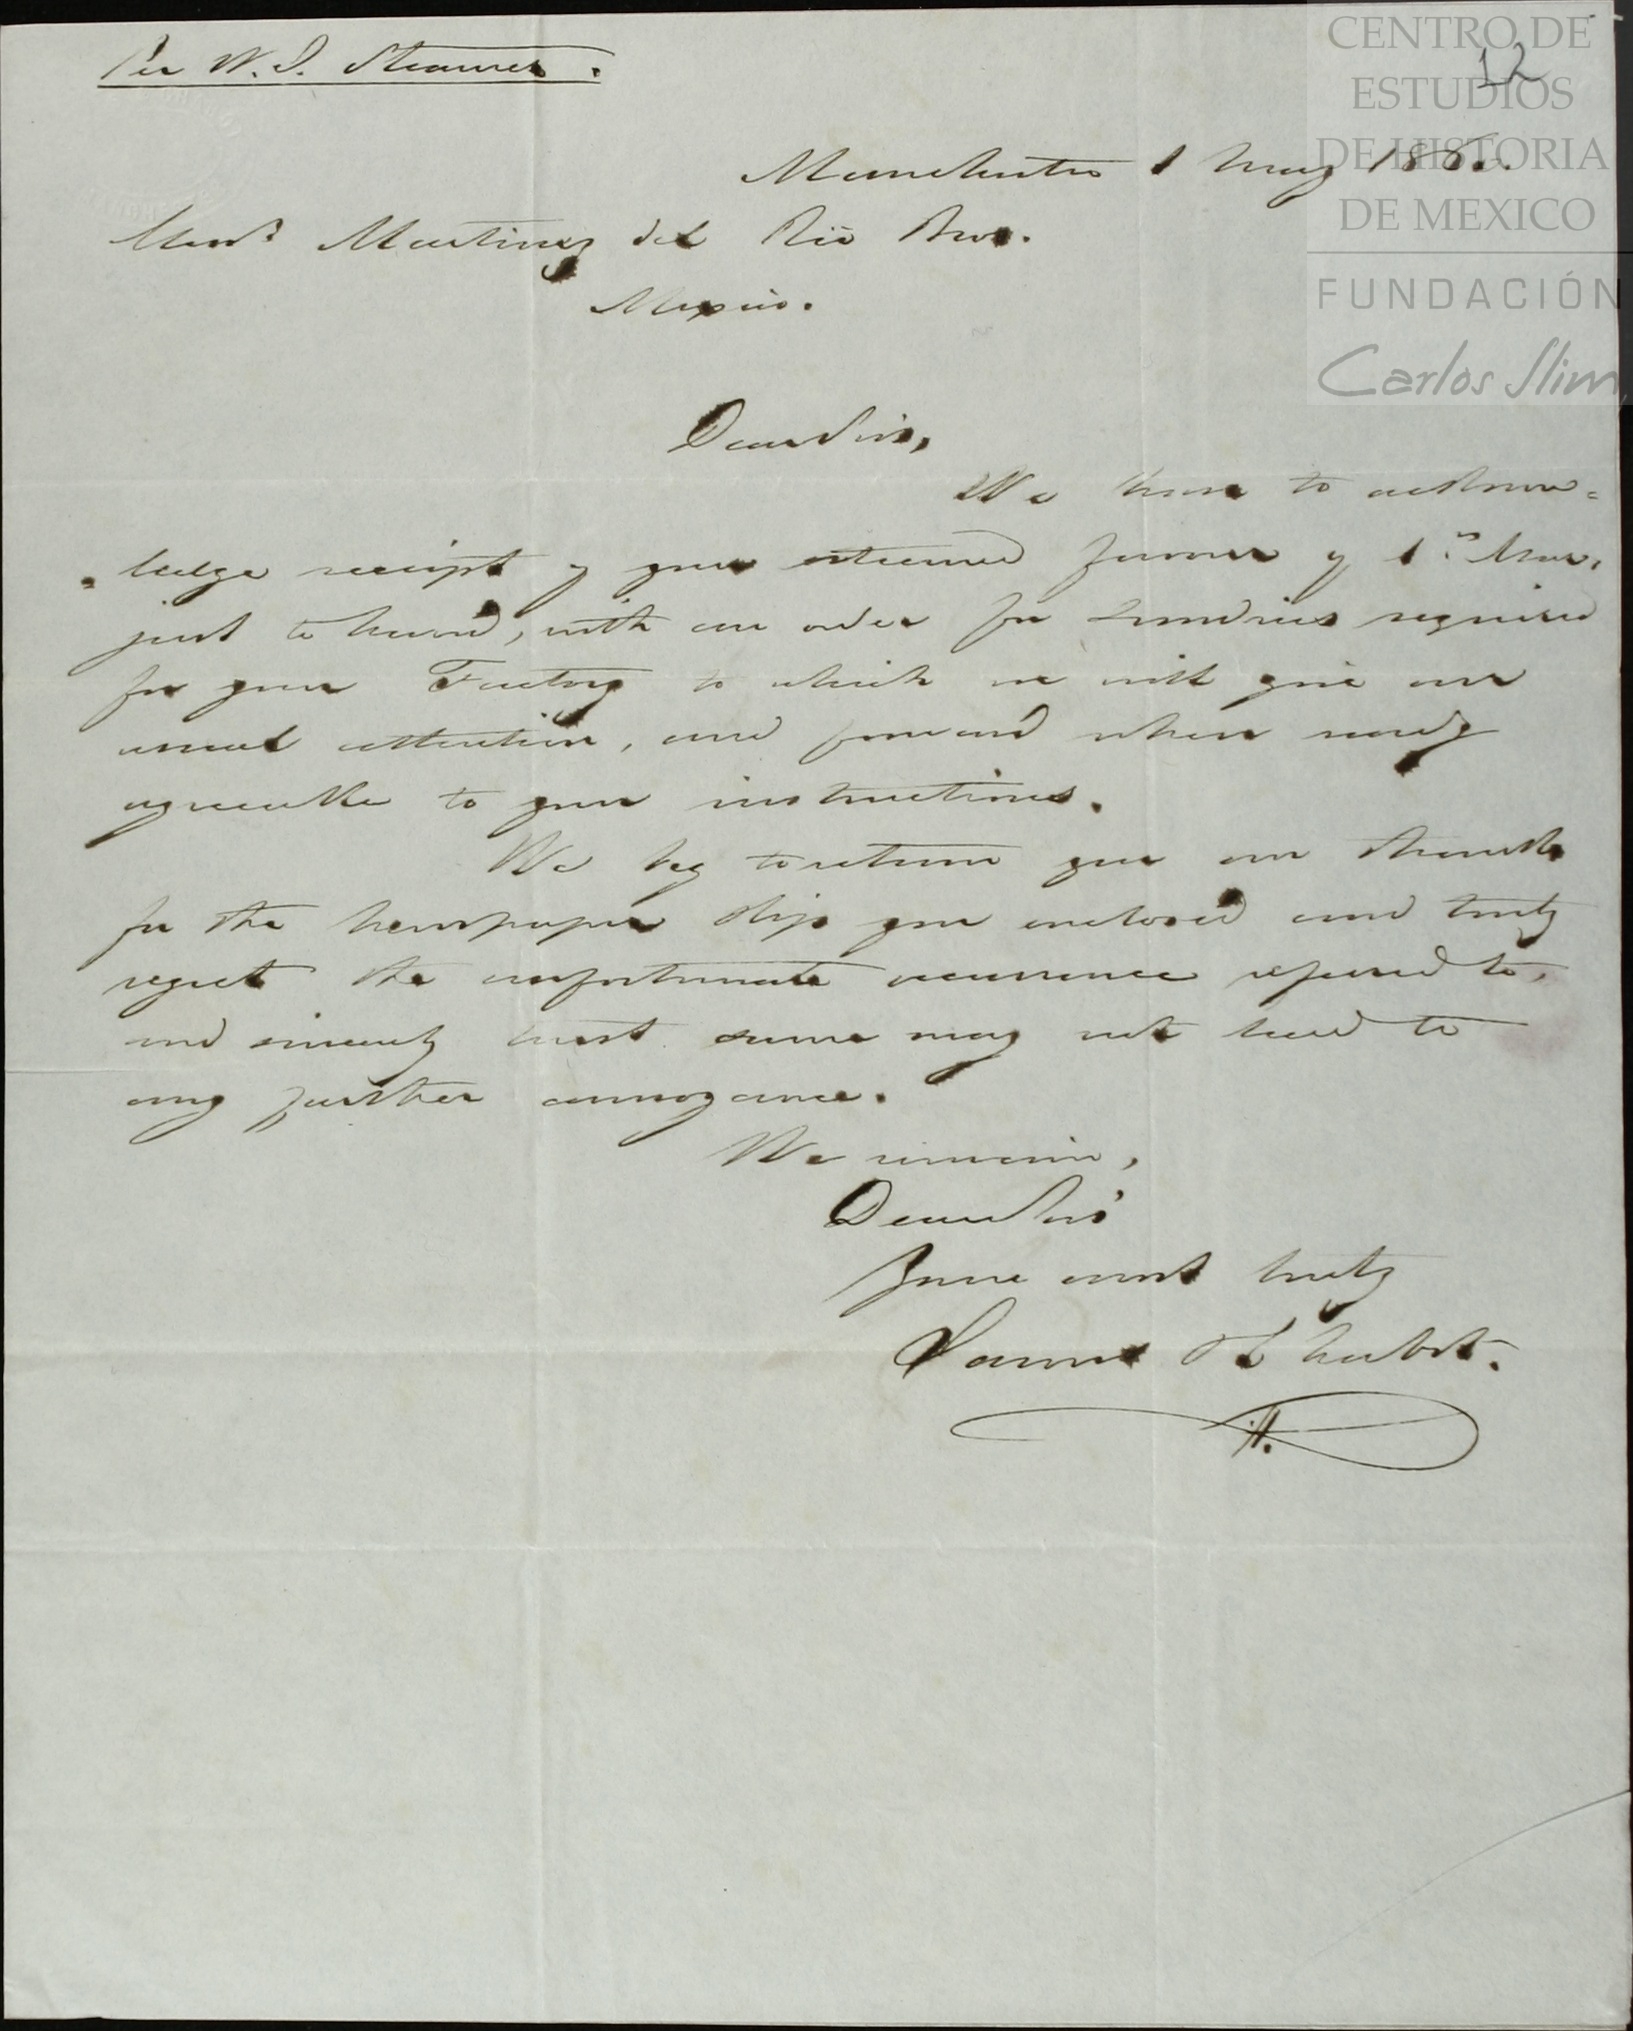 Per W. I. Steamer.
12
Manchester 1 May 186
Messrs Martinez del Rio Bros.
Mexico.
Dear Sirs,
We have to acknow=
=ledge receipt of your esteemed favour of 1st Mar.
just to hand, with an order for sundries required
for your Factory to which we will give our
usual attention, and forward when ready
agreeable to your instructions.
We beg to return you our thanks
for the newspaper slip you enclosed and truly
regret the unfortunate occurrence referred to,
and sincerely trust same may not lead to
any further annoyance.
We remain,
Dear Sirs
Yours most truly
CENTRO DE
ESTUDIOS
DE HISTORIA
DE MEXICO
FUNDACIÓN
Carlos Slim